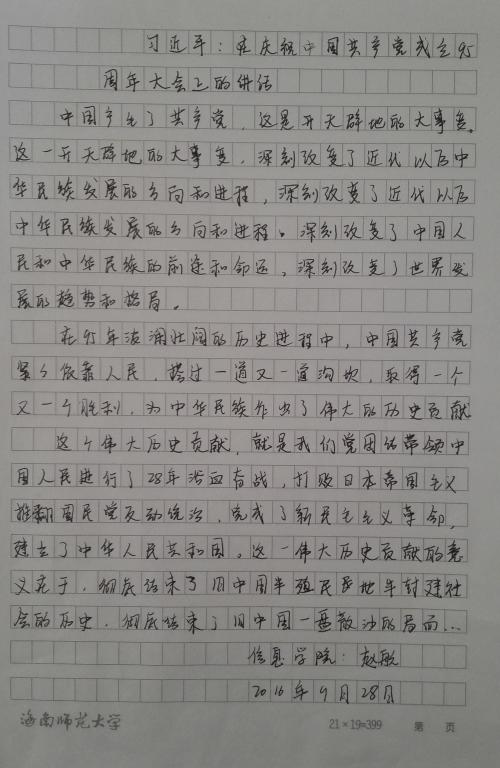 习近平：在庆祝中国共产党成立95
周年大会上的讲话
中国产生了共产党，这是开天辟地的大事变。
这一开天辟地的大事变，深刻改变了近代以后中
华民族发展的方向和进程，深刻改变了近代以后
中华民族发展的方向和进程。深刻改变了中国人
民和中华民族的前途和命运，深刻改变了世界发
展的趋势和格局。
在95年波澜壮阔的历史进程中，中国共产党
紧紧依靠人民，跨过一道又一道沟坎，取得一个
又一个胜利，为中华民族作出了伟大的历史贡献
这个伟大历史贡献，就是我们党团结带领中
国人民进行了28年浴血奋战，打败日本帝国主义
推翻国民党反动统治，完成了新民主主义革命，
建立了中华人民共和国。这一伟大历史贡献的意
义在于，彻底结束了旧中国半殖民地半封建社
会的历史，彻底结束了旧中国一盘散沙的局面...
信息学院：赵航
2016年9月28日
海南师范大学 21×19=399 第 页